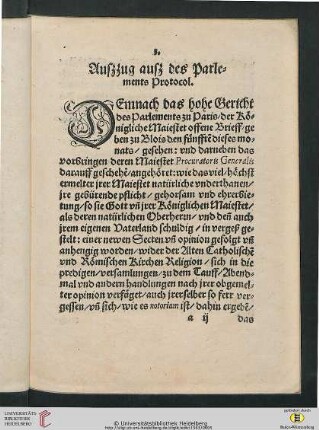 1.
Auszzug ausz des Parle-
ments Protocol.
DEmnach das hohe Gericht
des Parlements zu Paris/ der Kö-
nigliche Maiestet offene Brieff ge
ben zu Blois den fünfftē dieses mo-
nats/ gesehen: und darneben das
vorbringen deren Maiestet Procuratoris Generalis
darauff geschehē/ angehöret: wie das viel/ höchst
ermelter jrer Maiestet natürliche vnderthanen/
jre gebürende pflicht/ gehorsam und ehrerbie-
tung/ so sie Gott vn̄ jrer Königlichen Maiestet/
als deren natürlichen Oberherrn/ und den̄ auch
jrem eigenen Vaterland schuldig/ in verges ge-
stelt: einer newen Secten vn̄ opinion gefolgt vn̄
anhengig worden/ wider der Alten Catholischē
und Römischen Kirchen Religion/ sich in die
predigen/ versamlungen/ zu dem Tauff/ Abend-
mal und andern handlungen nach jrer obgemel-
ter opinion verfüget/ auch jrer selber so ferr ver-
gessen/ vn̄ sich/ wie es notorium ist/ dahin ergebē/
a ij das
UNIVERSITÄTS-
BIBLIOTHEK
HEIDELBERG
© Universitätsbibliothek Heidelberg
gefördert durch
Baden-Württemberg